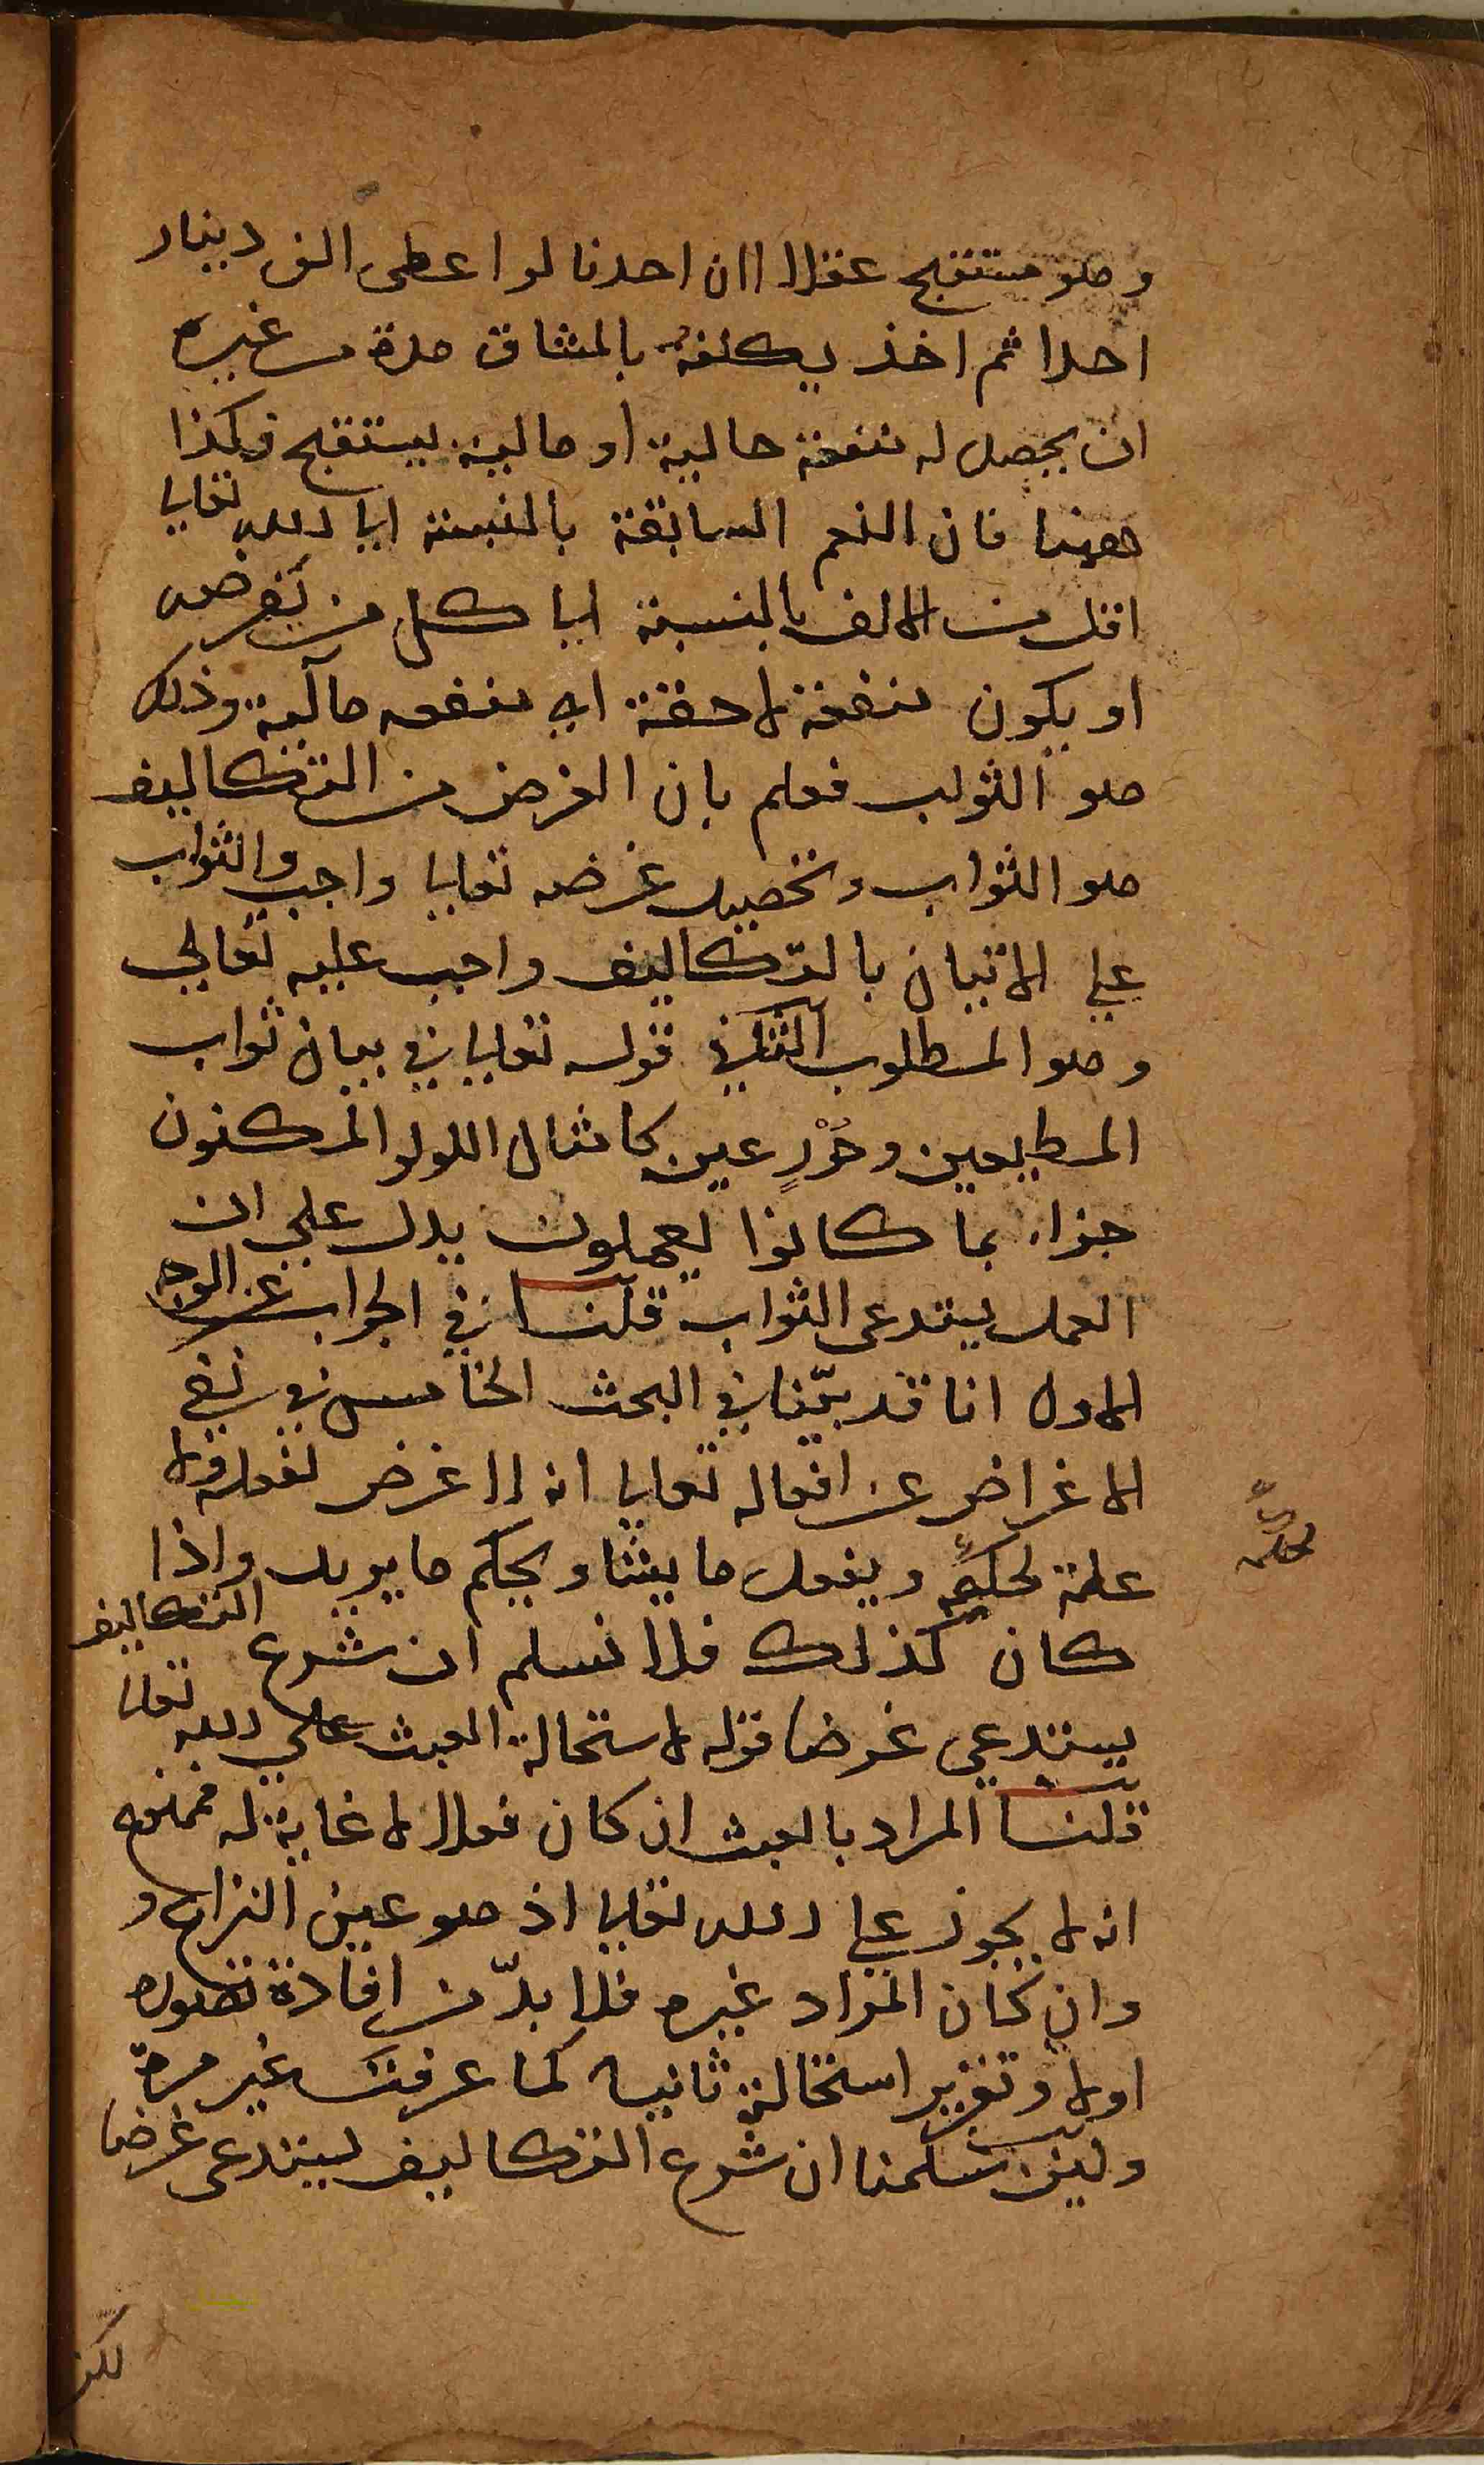 وهو مستقبح عقلا لان احدنا لو اعطى الف دينار
احدا ثم اخذ يكلفه بالمشاق مدة من غير
ان يحصل له منفعة حالية او مالية يستقبح فكذا
ههنا فان النعم السابقة بالنسبة الى الله تعالى
اقل من الالف بالنسبة الى كل من نفرضه
او يكون منفعة لاحقة اي منفعه مآلية وذلك
هو الثواب فعلم بان الغرض من التكاليف
هو الثواب وتحصيل غرضه تعالى واجب والثواب
على الاتيان بالتكاليف واجب عليه تعالى
وهو المطلوب الثاني قوله تعالى في بيان ثواب
المطيعين وحُوْرٍ عين كامثال اللولو المكنون
جزاء بما كانوا يعملون يدل على ان
العمل يستدعى الثواب قلنا في الجواب عن الوجه
الاول انا قد بيّنا في البحث الخامس في نفي
الاغراض عن افعاله تعالى انه لا غرض لفعله ولا
علة لحكمه ويفعل ما يشا ويحكم ما يريد واذا
كان كذلك فلا نسلم ان شرع التكاليف
يستدعي غرضا قوله لاستحالة العبث على الله تعالى
قلنا المراد بالعبث ان كان فعلا لا غاية له فممنوع
انه لا يجوز على الله تعالى اذ هو عين النزاع و
وان كان المراد غيره فلا بدّ من افادة تصوره
اولا وتقرير استحالته ثانيا كما عرفت غير مرة
ولئن سلمنا ان شرع التكاليف يستدعى غرضا
لكن